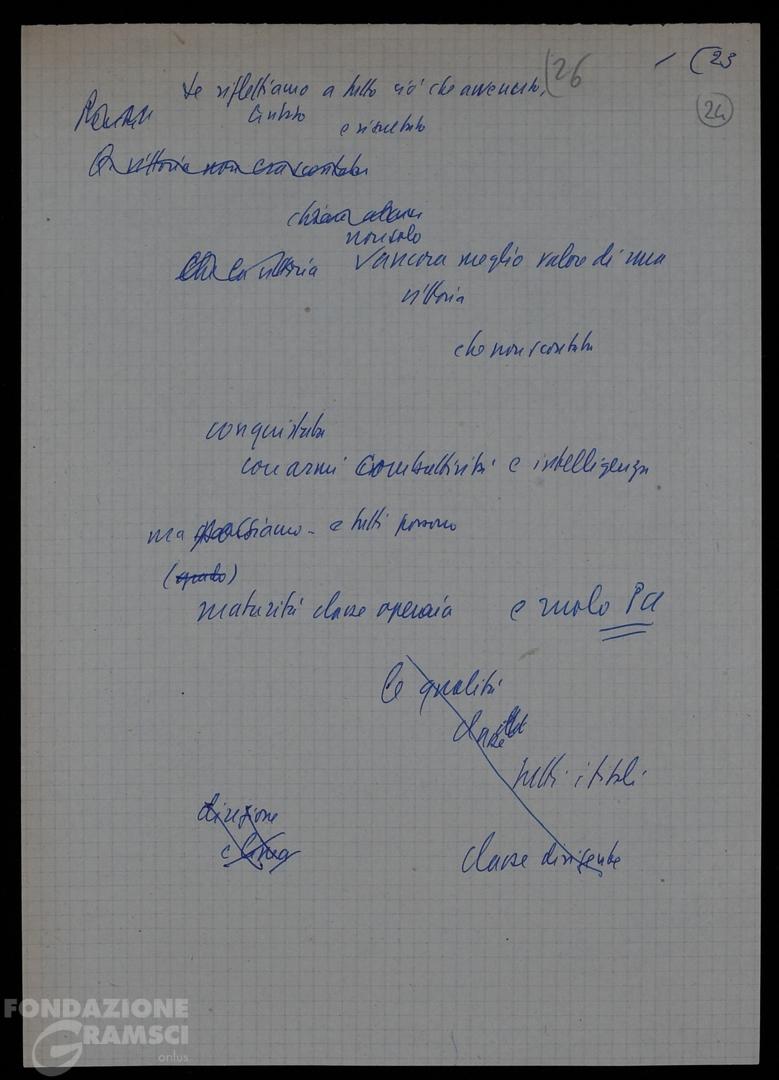 26
(23
24
Se riflettiamo a tutto ciò che avvenuto,
e risultato
La vittoria non era scontata
non solo
che la vittoria ancora meglio valore di una
vittoria
che non scontata
conquistata
con armi combattività e intelligenza
ma possiamo - e tutti possono
(quale)
maturità classe operaia e ruolo Pci
le qualità
classe
tutti i titoli
direzione
classe dirigente
FONDAZIONE
GRAMSCI
onlus